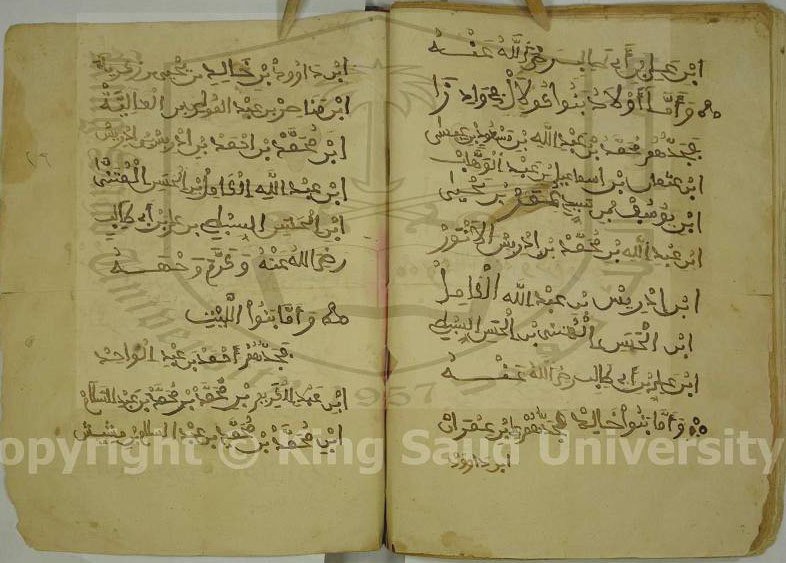 ابن علي بن أبي طالب رضي الله عنه
وأما أولاد بنوا عولال بجواد زا
فجدهم محمد بن عبد الله بن مسعود بن عيسى
ابن عثمان بن اسماعيل بن عبد الوهاب
ابن يوسف بن يحيى
ابن عبد الله بن محمد بن ادريس الانور
ابن ادريس بن عبد الله الكامل
ابن الحسن المثنى بن الحسن السبط
ابن علي بن أبي طالب رضي الله عنه
وأما بنوا خالد فجدهم ابن عمران
ابن داوود
ابن داوود بن خالد بن يحيى بن زكرياء
ابن مناصر بن عبد القوي بن العالية
ابن محمد بن احمد بن ادريس بن ادريس
ابن عبد الله الكامل بن الحسن المثنى
ابن الحسن السبط بن علي بن أبي طالب
رضي الله عنه وكرم وجهه
وأما بنوا الليث
فجدهم أحمد بن عبد الواحد
ابن عبد الكريم بن محمد بن محمد بن عبد السلام
ابن محمد بن محمد بن عبد السلام بن مشيش
Copyright © King Saud University
1957